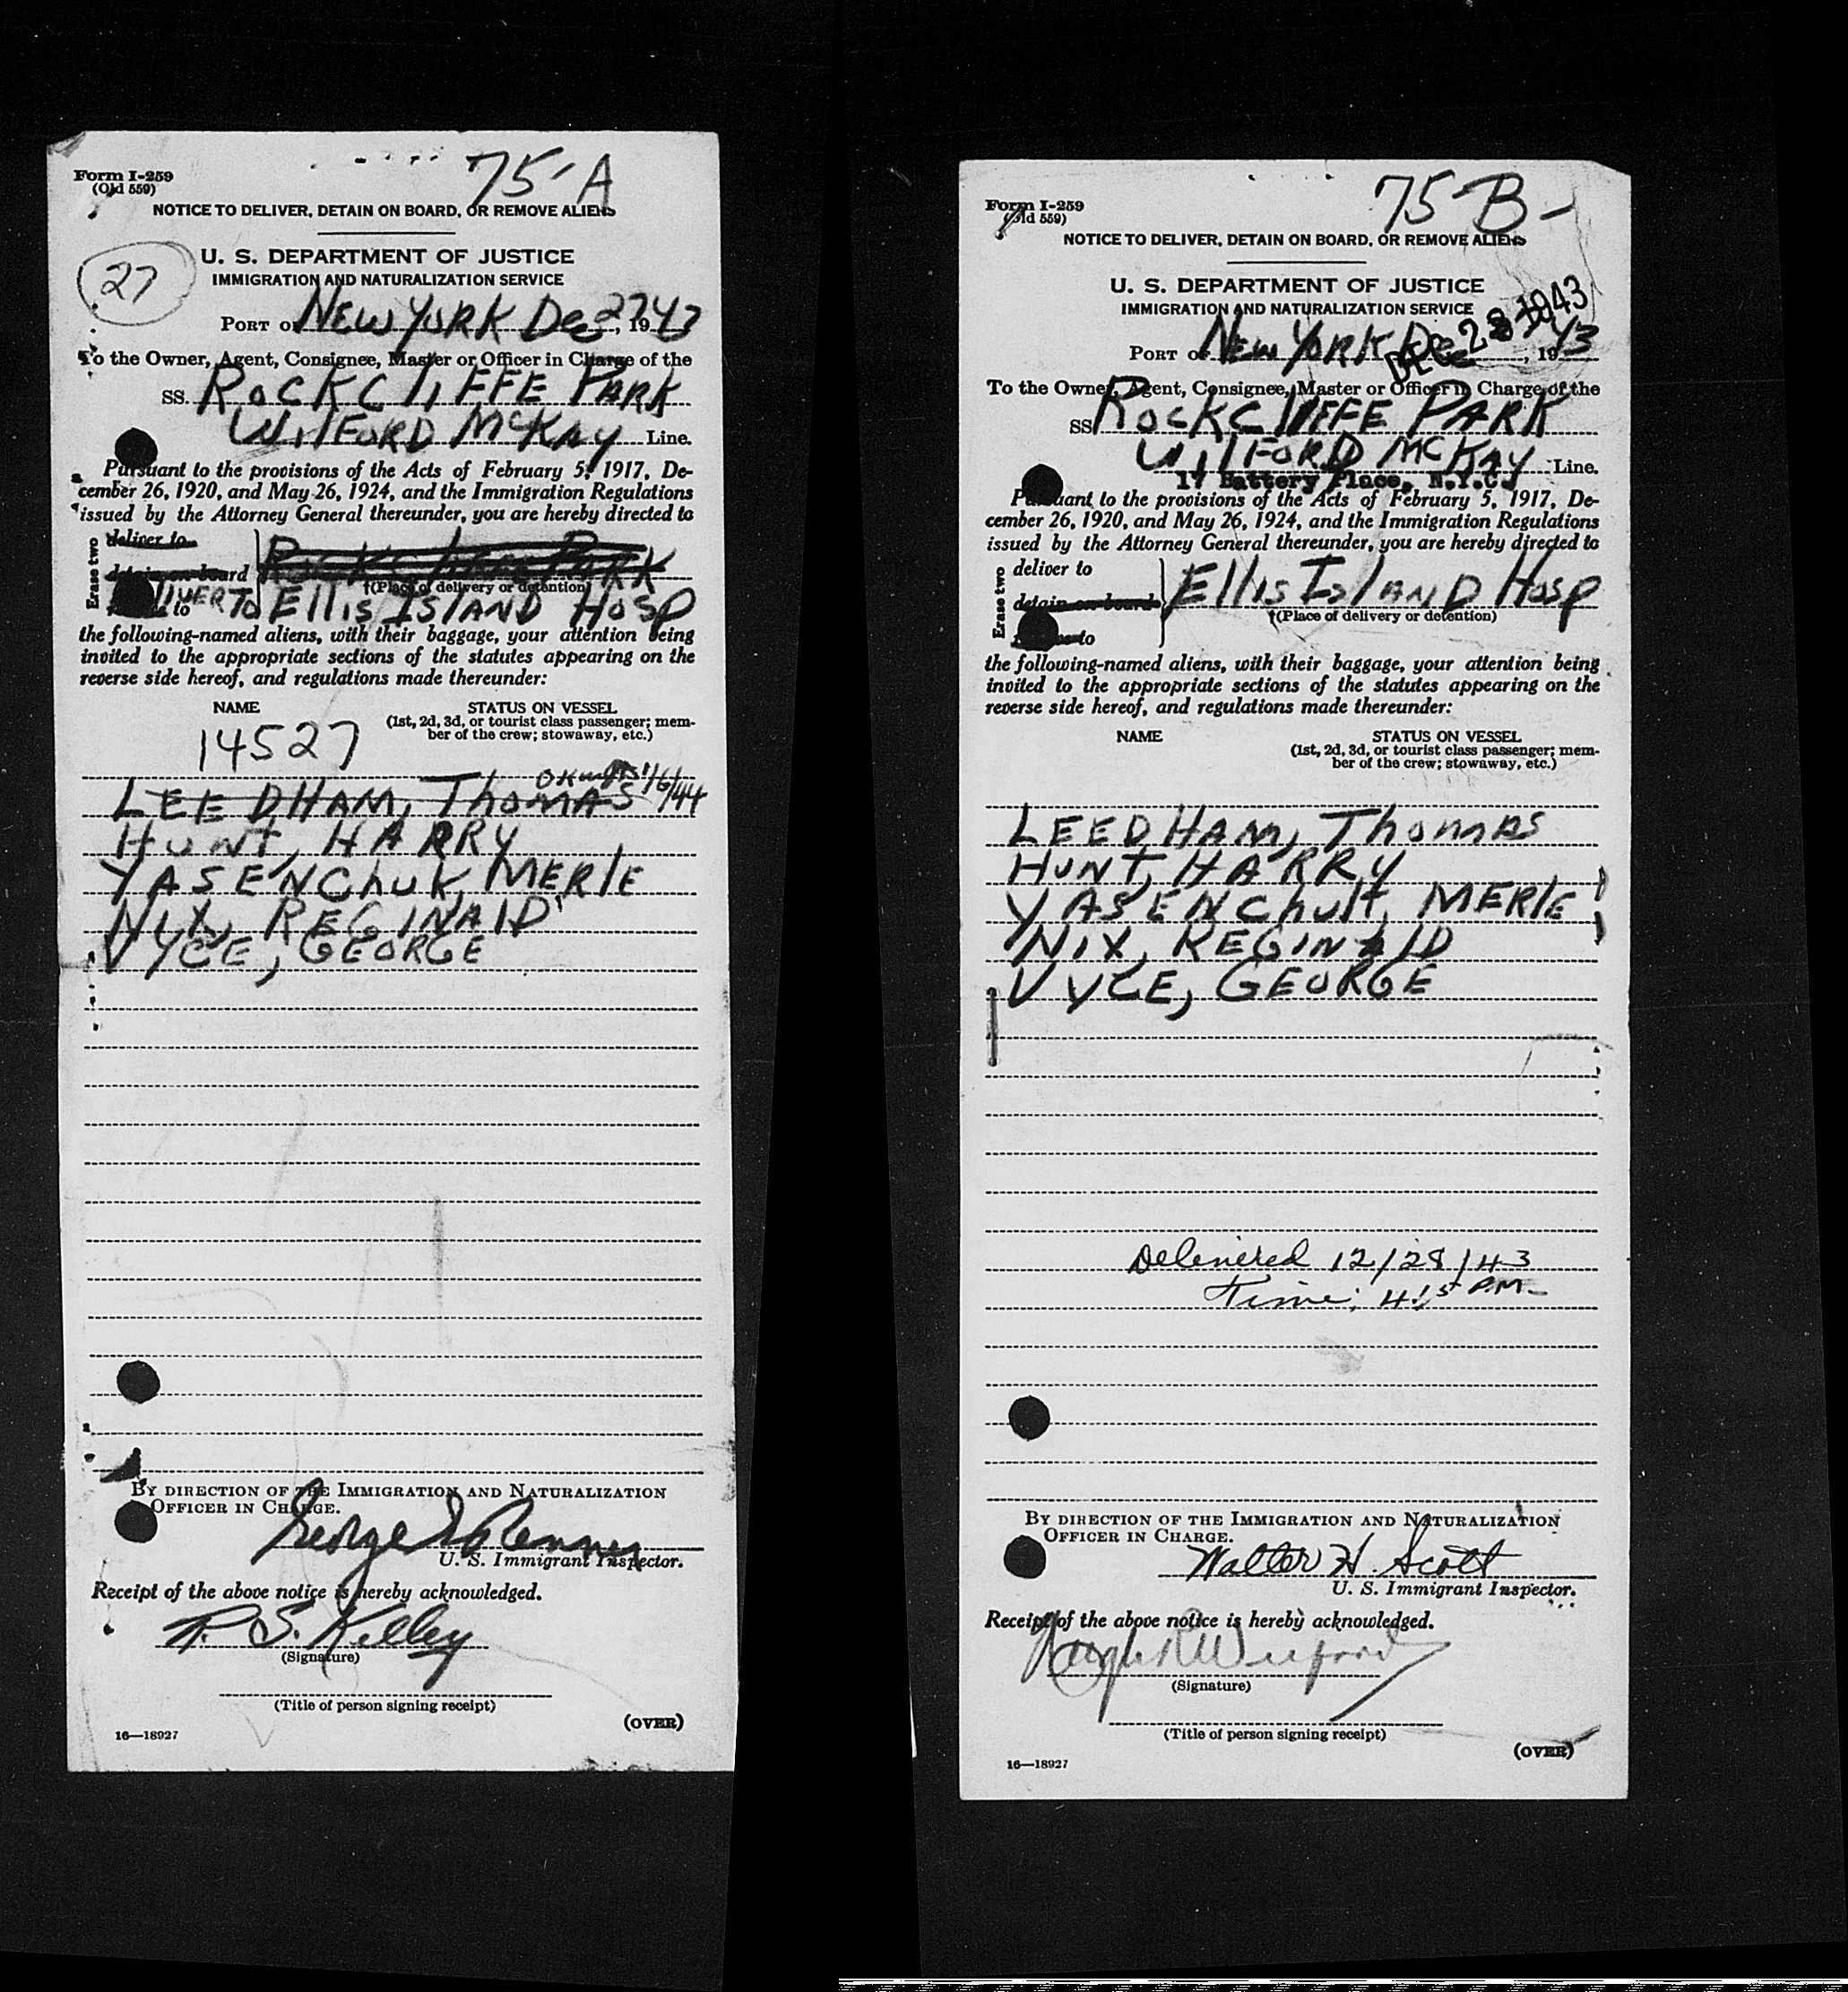 Form I-259
(Old 559)
75-A
NOTICE TO DELIVER, DETAIN ON BOARD, OR REMOVE ALIENS
27
U. S. DEPARTMENT OF JUSTICE
IMMIGRATION AND NATURALIZATION SERVICE
PORT OF NEW YORK Dec 27, 1943
To the Owner, Agent, Consignee, Master or Officer in Charge of the
SS. ROCKCLIFFE PARK
WILFORD McKAY Line.
Pursuant to the provisions of the Acts of February 5, 1917, De-
cember 26, 1920, and May 26, 1924, and the Immigration Regulations
issued by the Attorney General thereunder, you are hereby directed to
Erase two
deliver to
detain on board ROCKCLIFFE PARK
†(Place of delivery or detention)
DELIVER TO ELLIS ISLAND HOSP
the following-named aliens, with their baggage, your attention being
invited to the appropriate sections of the statutes appearing on the
reverse side hereof, and regulations made thereunder:
NAME
STATUS ON VESSEL
(1st, 2d, 3d, or tourist class passenger; mem-
ber of the crew; stowaway, etc.)
14527
OK 1/6/44
LEEDHAM, THOMAS
HUNT, HARRY
YASENCHUK, MERLE
NIX, REGINALD
VYCE, GEORGE
BY DIRECTION OF THE IMMIGRATION AND NATURALIZATION
OFFICER IN CHARGE.
George Renner
U. S. Immigrant Inspector.
Receipt of the above notice is hereby acknowledged.
R. S. Kelley
(Signature)
(Title of person signing receipt)
(OVER)
16—18927
Form I-259
(Old 559)
75-B-
NOTICE TO DELIVER, DETAIN ON BOARD, OR REMOVE ALIENS
U. S. DEPARTMENT OF JUSTICE
IMMIGRATION AND NATURALIZATION SERVICE
DEC 28 1943
PORT OF NEW YORK Dec, 1943
To the Owner, Agent, Consignee, Master or Officer in Charge of the
SS ROCKCLIFFE PARK
WILFORD McKAY Line.
17 Battery Place, N.Y.C.
Pursuant to the provisions of the Acts of February 5, 1917, De-
cember 26, 1920, and May 26, 1924, and the Immigration Regulations
issued by the Attorney General thereunder, you are hereby directed to
Erase two
deliver to
detain on board ELLIS ISLAND HOSP
†(Place of delivery or detention)
to
the following-named aliens, with their baggage, your attention being
invited to the appropriate sections of the statutes appearing on the
reverse side hereof, and regulations made thereunder:
NAME
STATUS ON VESSEL
(1st, 2d, 3d, or tourist class passenger; mem-
ber of the crew; stowaway, etc.)
LEEDHAM, THOMAS
HUNT, HARRY
YASENCHUK, MERLE
NIX, REGINALD
VYCE, GEORGE
Delivered 12/28/43
Time: 4:15 P.M.
BY DIRECTION OF THE IMMIGRATION AND NATURALIZATION
OFFICER IN CHARGE.
Walter H. Scott
U. S. Immigrant Inspector.
Receipt of the above notice is hereby acknowledged.
(Signature)
(Title of person signing receipt)
(OVER)
16—18927